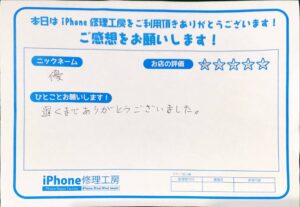 本日は iPhone 修理工房をご利用頂きありがとうございます!
ご感想をお願いします!
ニックネーム
優
お店の評価 ☆☆☆☆☆
ひとことお願いします!
遅くまでありがとうございました。
iPhone修理工房